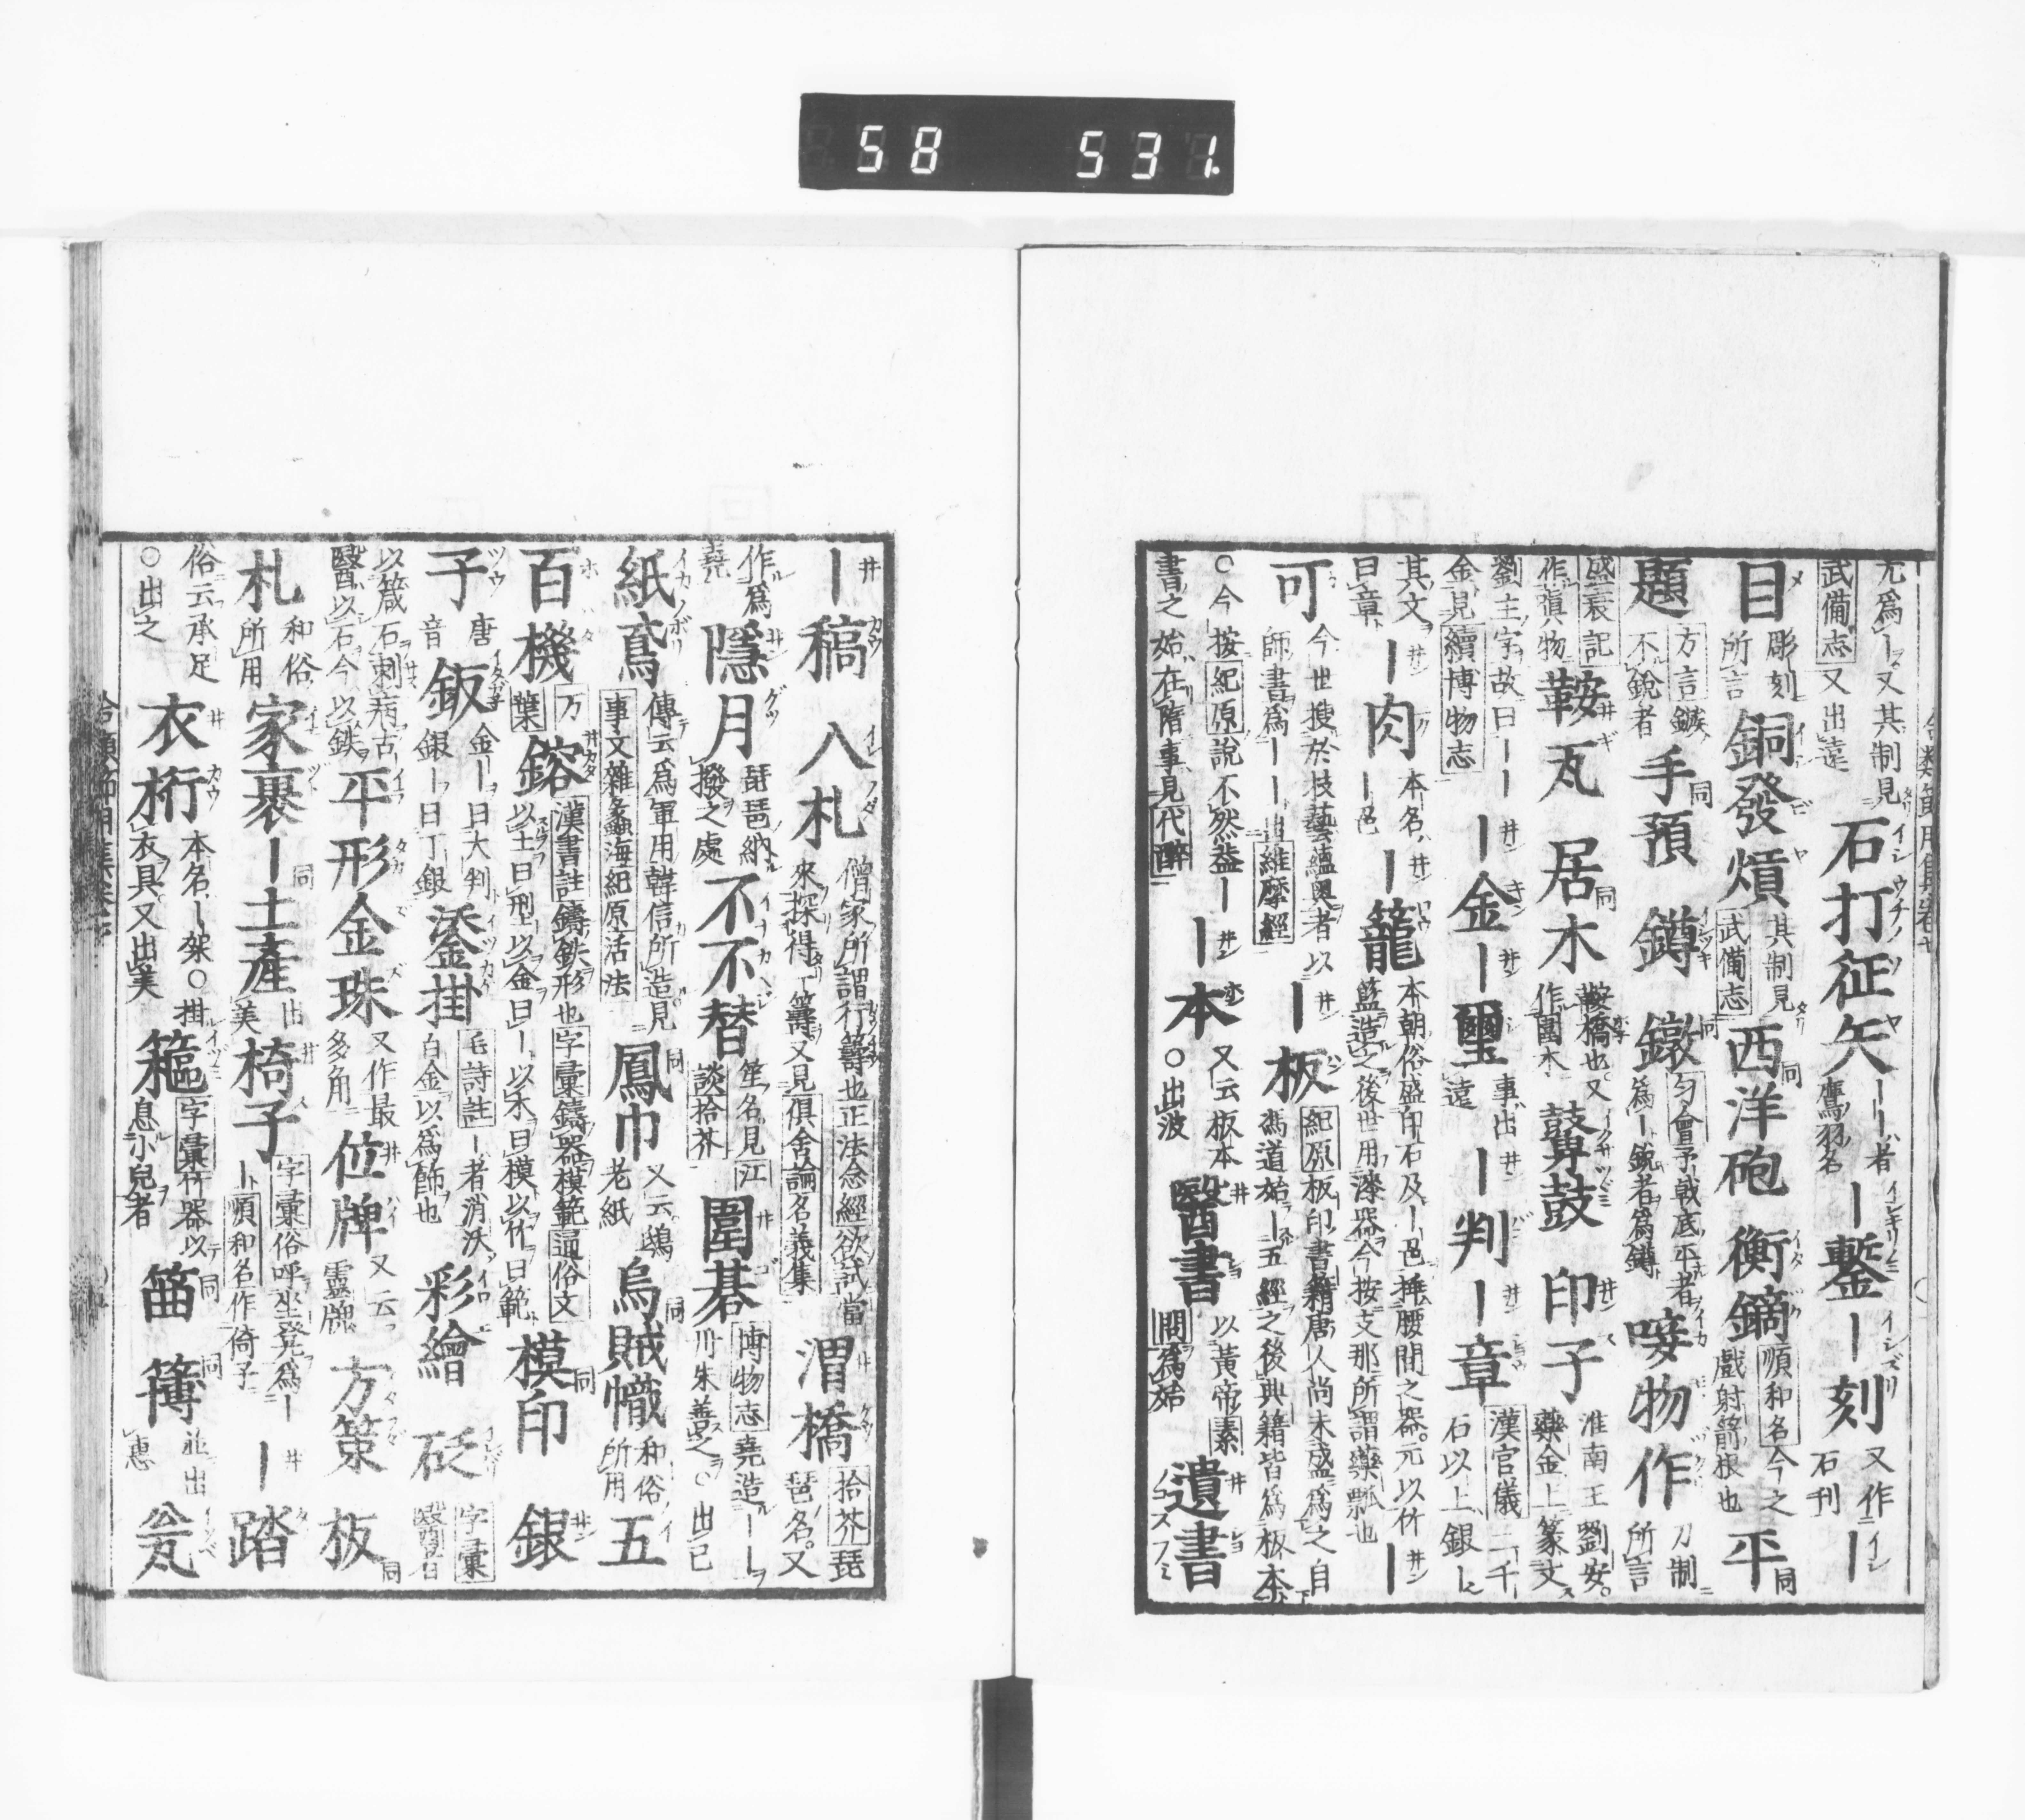 58 531
尤爲｜又其制見
武備志又出遠
石打征矢｜｜者鷹羽名
｜鏨｜刻又作｜石刊
目彫刻所言
銅發熕其制見武備志
西洋砲
衡鏑順和名今之戲射箭根也
平題方言鏃不銳者
手預
鐏
鐓
爲｜銳者爲鐏
物作刀制所言
盛衰記作瀕物
鞍瓦
居木鞍橋也又作圍木
鼓
印子淮南王劉安藥金上篆文
劉主字故曰｜｜
金見續博物志
｜金
｜璽事出遠
｜判
｜章漢官儀二千石以上銀
其文曰章
｜肉本名｜邑
｜籠本朝俗盛印石及｜邑捶腰間之器元以竹
籃造之後世用漆器今按支那所謂藥瓢也
可今世搜於技藝蘊奧者以師書爲｜｜出維摩經
｜板紀原板印書籍唐人尚未盛爲之自
馮道始｜五經之後典籍皆爲板本
○今按紀原說不然益｜
書之始在隋事見代醉
｜本又云板本○出波
醫書以黃帝素問爲始
遺書
｜稿
入札僧家所謂行籌也正法念經欲試當
來探得｜籌又見俱舍論名義集
渭橋拾芥琵琶名又
作爲堯
隱月琵琶納撥之處
不不替笙名見江談拾芥
圍碁博物志堯造｜｜
川朱善之○出已
紙鳶傳云爲軍用韓信所造見
事文雜彔蠡海紀原活法
鳳巾又云鴟老紙
烏賊幟和俗所用
五百機万葉
鎔漢書註鑄鉄形也字彙鑄器模範逼俗文
以土曰型以金曰｜以木曰模以竹曰範
模印
銀子唐音
鈑金｜曰大判銀｜曰丁銀
鋈掛毛詩註｜者消沃白金以爲飾也
彩繪
砭字彙醫者
以箴石刺病古
醫以石今以鉄
平形金珠又作最多角
位牌又云靈牌
方策
板札和俗所用
家裹
｜土產出美
椅子字彙俗呼坐凳爲｜
｜順和名作倚子
｜踏俗云承足○出之
衣桁本名｜架○掛衣具又出美
箍字彙竹器以息小兒者
笛
簙並出惠
瓫
合類節用集卷七